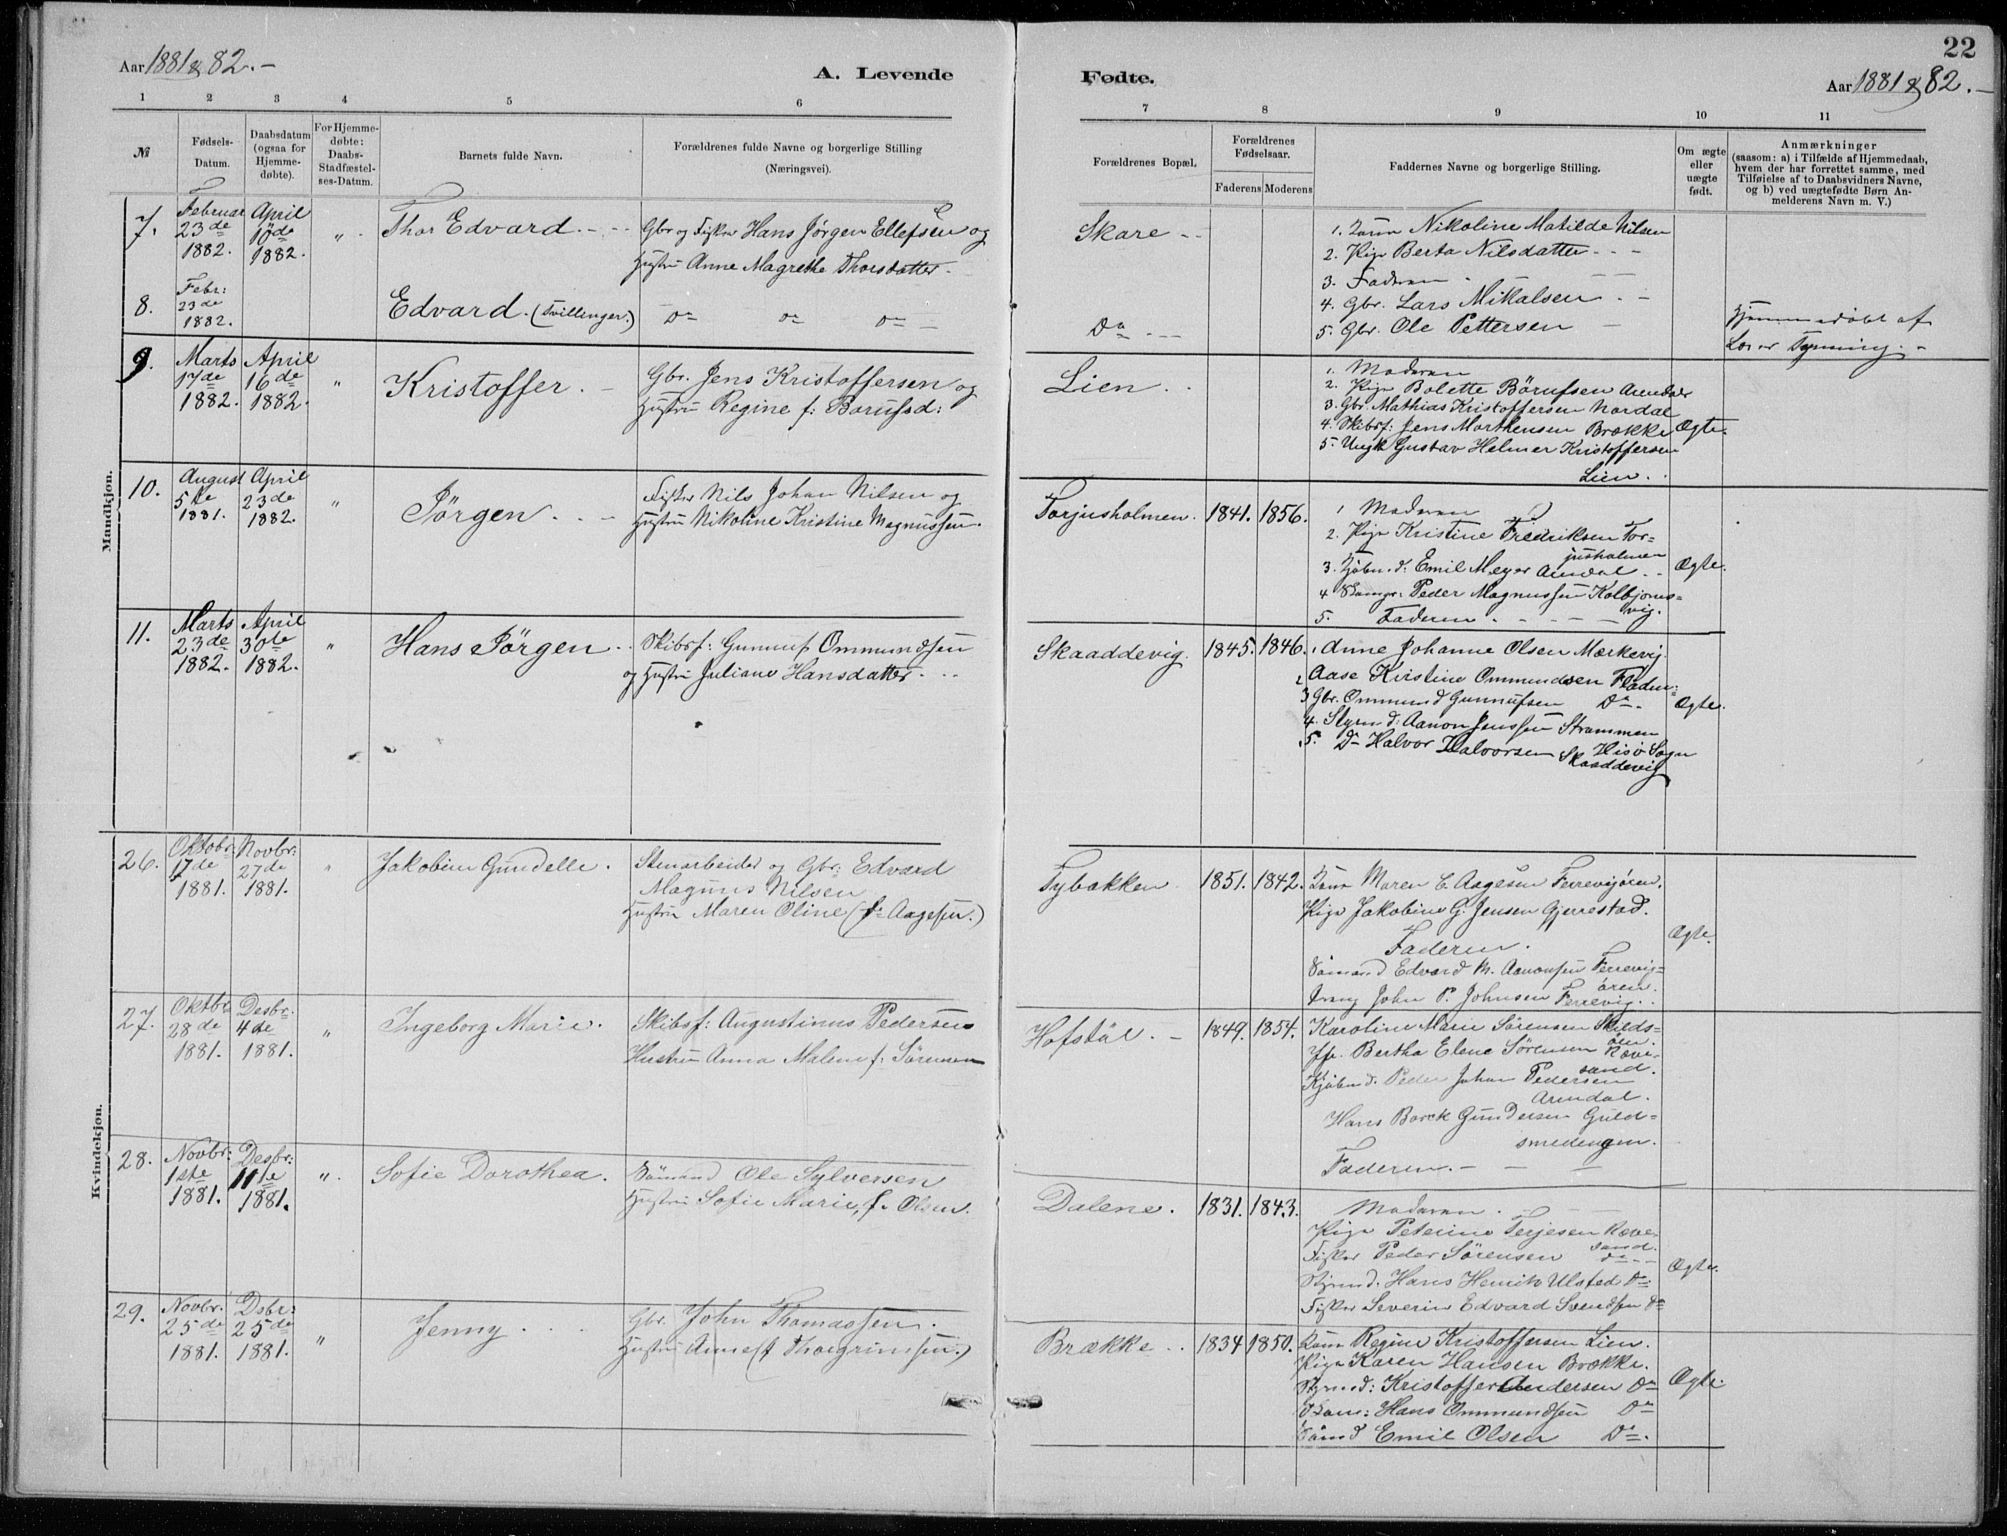 22
Aar 1881 & 82. –
A. Levende
Fødte.
Aar 1881 & 82. –
1 2 3 4 5 6 7 8 9 10 11
№
Fødsels-
Datum.
Daabsdatum
(ogsaa for
Hjemme-
døbte).
For Hjemme-
døbte:
Daabs-
Stadfæstel-
ses-Datum.
Barnets fulde Navn.
Forældrenes fulde Navne og borgerlige Stilling
(Næringsvei).
Forældrenes Bopæl.
Forældrenes
Fødselsaar.
Faderens Moderens
Faddernes Navne og borgerlige Stilling.
Om ægte
eller
uægte
født.
Anmærkninger
(saasom: a) i Tilfælde af Hjemmedaab,
hvem der har forrettet samme, med
Tilføielse af to Daabsvidners Navne,
og b) ved uægtefødte Børn An-
melderens Navn m. V.)
Mandkjøn.
7.
Februar
23de
1882.
April
10de
1882.
"
Thor Edvard
Gbr og Fisker Hans Jørgen Ellefsen og
Hustru Anne Magrethe Thorsdatter
Skare
1. Nikoline Matilde Nilsen
2. Pige Berta Nilsdatter
3. Faderen
4. Gbr. Lars Mikalsen
5. Gbr. Ole Pettersen
8.
Febr:
23de
1882.
Edvard. (Tvillinger.)
Do Do Do
Do
Hjemmedøbt af
Lærer Tønning.
9.
Marts
17de
1882.
April
16de
1882.
"
Kristoffer.
Gbr. Jens Kristoffersen og
Hustru Regine f: Borufsd:
Lien.
1. Moderen
2. Pige Bolette Börufsen Arendal
3. Gbr. Mathias Kristoffersen Nordal
4. Skibsf: Jens Marthensen Brække
5. Ungk Gustav Helmer Kristoffersen
Lien.
Ægte.
10.
August
5te
1881.
April
23de
1882.
"
Jørgen
Fisker Nils Johan Nilsen og
Hustru Nikoline Kristine Magnussen.
Torjusholmen. 1841. 1856.
1 Moderen
2. Pige Kristine Fredriksen Tor=
jusholmen
3. Kjøbmd: Emil Meyer Arendal
4 Peder Magnussen Kolbjørns=
vig.
5. Faderen
Ægte.
11.
Marts
23de
1882.
April
30te
1882.
"
Hans Jörgen
Skibsf: Gunnuf Ommundsen
og Hustru Juliane Hansdatter.
Skaaddevig. 1845. 1846.
1 Anne Johanne Olsen Mærkevig.
2 Aase Kristine Ommundsen Fladen:
3 Gbr. Ommund Gunnufsen Do
4. Styrmd: Aanon Jenssen Strømmen
Hisö Sogn
5. Do Halvor Halvorsen Skaaddevig
Ægte.
Kvindekjøn.
26.
Oktobr
17de
1881.
Novbr:
27de
1881.
"
Jakobine Gundelle.
Stenarbeider og Gbr: Edvard
Magnus Nilsen
Hustru Maren Oline (f: Aagesen.)
Tybakken 1851. 1842.
Maren C. Aagesen Ferrevigören.
Pige Jakobine G. Jensen Gjerrestad.
Faderen.
Sömand Edvard M. Aanonsen Ferrevig=
ören.
John P. Johnsen Ferrevig.
Ægte.
27.
Oktbr
28de
1881.
Desbr:
4de
1881.
"
Ingeborg Marie.
Skibsf: Augustinus Pedersen
Hustru Anna Malene f: Sørensen
Hofstöl. 1849. 1854.
Karoline Marie Sörensen Skilds=
öen.
Jfr. Bertha Elene Sörensen Ræve=
sand.
Kjøbmd. Peder Johan Pedersen
Arendal.
Hans Borck Gundersen Guld=
smedengen.
Faderen.
28.
Novbr:
1ste
1881.
Desbr:
11te
1881.
"
Sofie Dorothea.
Sömand Ole Sylversen
Hustru Sofie Marie, f. Olsen.
Dalene. 1831. 1843.
Moderen.
Pige Peterine Terjesen Ræve=
sand.
Fisker Peder Sörensen Do
Styrmd. Hans Henrik Ulsted Do
Fisker Severin Edvard Svendsen Do
Ægte.
29.
Novbr.
25de
1881.
Dsbr:
25de
1881.
"
Jenny
Gbr. John Thomassen.
Hustru Anne (f Thorgrimsen.)
Brække 1834 1850.
Regine Kristoffersen Lien.
Pige Karen Hansen Brække.
Styrmd: Kristoffer Andersen Do
Hans Ommundsen Do
Sömd Emil Olsen Do
Ægte.